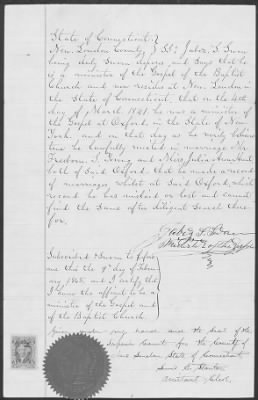 State of Connecticut }
New London County } SS: Jabez S. Swan
being duly sworn deposes and says that he
is a minister of the Gospel of the Baptist
Church and now resides at New London in
the State of Connecticut, that on the 4th day
of March 1849 he was a minister of
the Gospel at Oxford in the State of New
York and on that day as he verily believes
he lawfully united in marriage Mr
Fredom S. and Miss Julia Ann
both of said Oxford that he made a record
of marriages whilst at said Oxford, which
record he has mislaid or lost and cannot
find the same after diligent search there-
for.
Jabez S. Swan
Minister of the Gospel
Subscribed & Sworn to before
me this the 9th day of Febru-
ary 1865 and I certify that
I know the affiant to be a
minister of the Gospel and
of the Baptist Church
Given under my hand and the seal of the
Superior Court for the County of
New London, State of Connecticut
Assistant Clerk